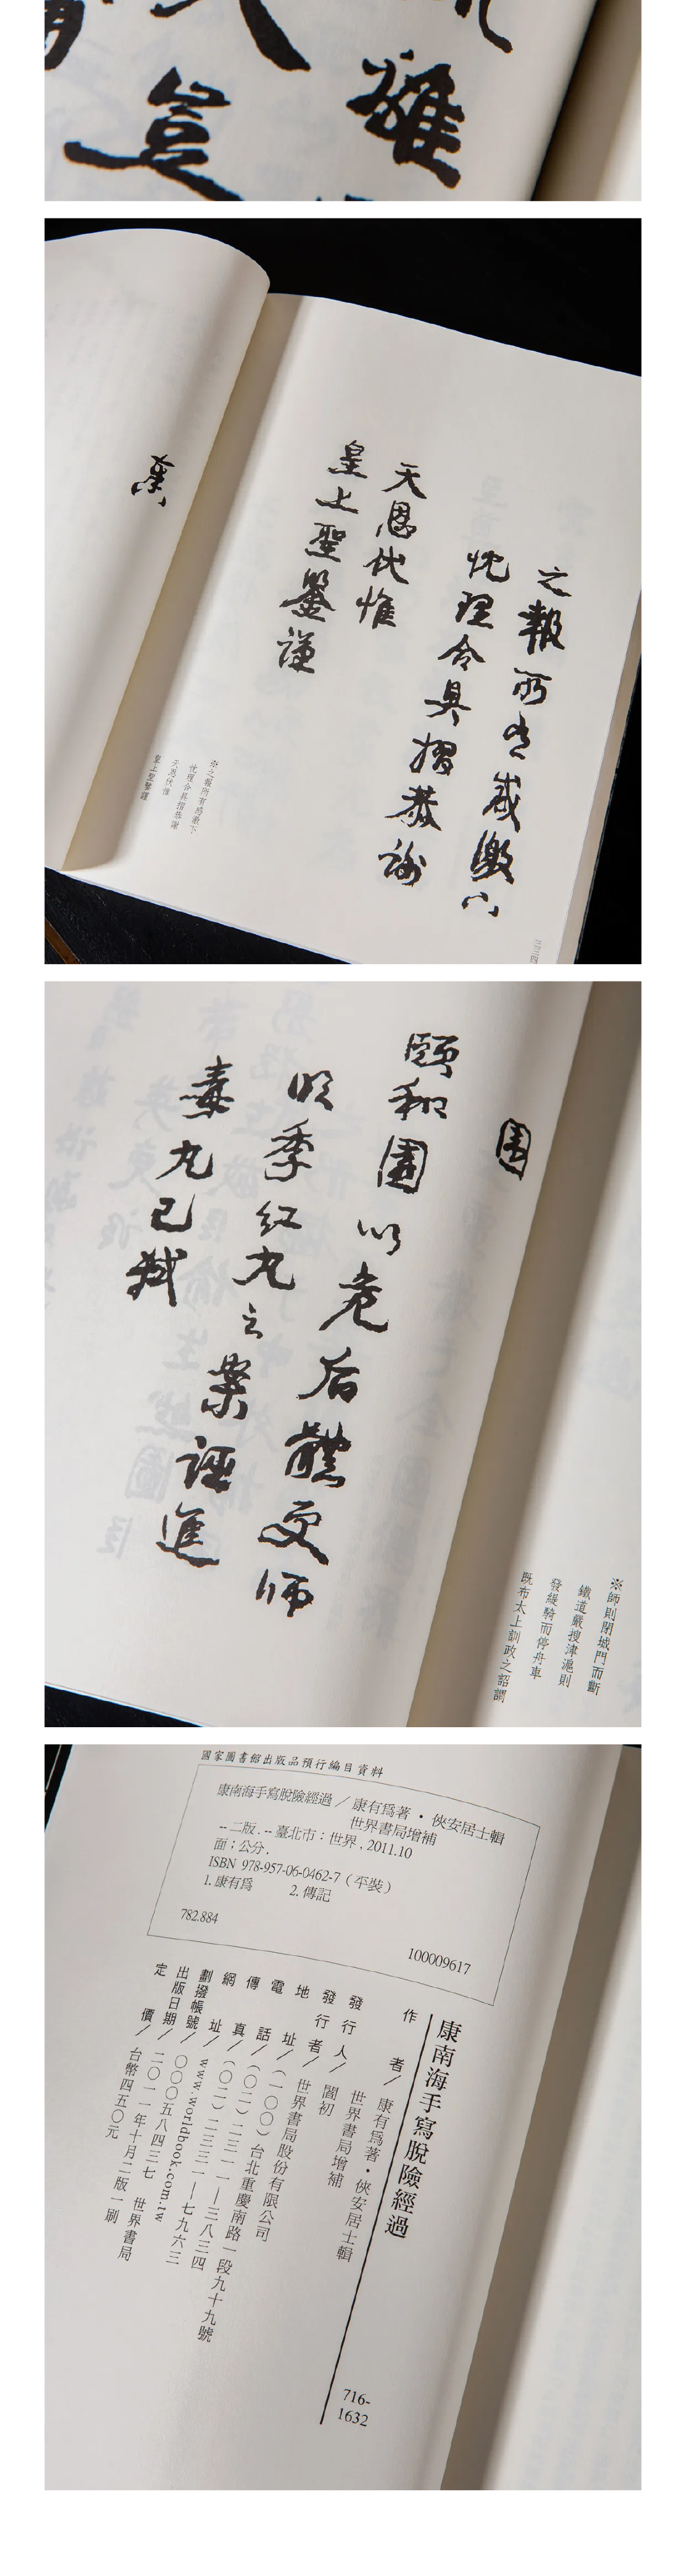 雄
豈
之報所有感激下
忱理合具摺恭謝
天恩伏惟
皇上聖鑒謹
奏
※之報所有感激下
忱理合具摺恭謝
天恩伏惟
皇上聖鑒謹
二三四
園
頤和園以危后髊交師
明季紅丸之案誣進
毒丸已弒
※師則閉城門而斷
鐵道嚴搜津滬則
發緹騎而停舟車
既布太上訓政之詔謂
國家圖書館出版品預行編目資料
康南海手寫脫險經過／康有爲著・俠安居士輯
世界書局增補
-- 二版. -- 臺北市：世界, 2011.10
面；公分.
ISBN 978-957-06-0462-7（平裝）
1. 康有爲 2. 傳記
782.884
100009617
康南海手寫脫險經過
作者／康有爲著・俠安居士輯
世界書局增補
發行人／閻初
發行者／世界書局股份有限公司
地址／（一〇〇）台北重慶南路一段九十九號
電話／（〇二）二三一一—三八三四
傳真／（〇二）二三三一—七九六三
網址／www.worldbook.com.tw
劃撥帳號／〇〇〇五八四三七 世界書局
出版日期／二〇一一年十月二版一刷
定價／台幣四五〇元
716-
1632